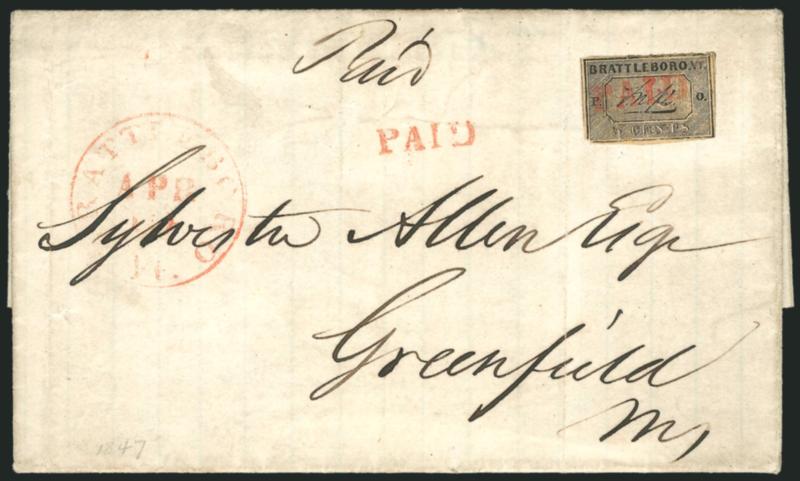 Paid
BRATTLEBORO, VT.
PAID
P. O.
5 CENTS
PAID
BRATTLEBORO
APR
Sylvester Allen Esqr
Greenfield
Ms
1847